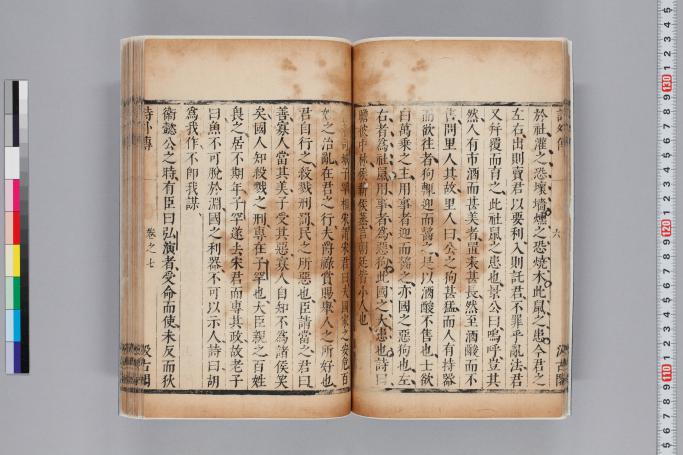 詩外傳
六
汲古閣
於社灌之恐壞墻燻之恐燒木此鼠之患今君之
左右出則賣君以要利入則託君不罪乎亂法君
又并覆而育之此社鼠之患也景公曰嗚呼豈其
然人有市酒而甚美者置表甚長然至酒酸而不
售問里人其故里人曰公之狗甚猛而人有持器
而欲往者狗輒迎而齧之是以酒酸不售也士欲
白萬乘之主用事者迎而齧之亦國之惡狗也左
右者為社鼠用事者為惡狗此國之大患也詩曰
瞻彼中林侯薪侯蒸言朝廷皆小人也
司城子罕相宋謂宋君曰夫國家之安危百
姓之治亂在君之行夫爵祿賞賜舉人之所好也
君自行之殺戮刑罰民之所惡也臣請當之君曰
善寡人當其美子受其惡寡人自知不為諸侯笑
矣國人知殺戮之刑專在子罕也大臣親之百姓
畏之居不期年子罕遂去宋君而專其政故老子
曰魚不可脫於淵國之利器不可以示人詩曰胡
為我作不卽我謀
衛懿公之時有臣曰弘演者受命而使未反而狄
詩外傳
卷之七
汲古閣
130
120
110